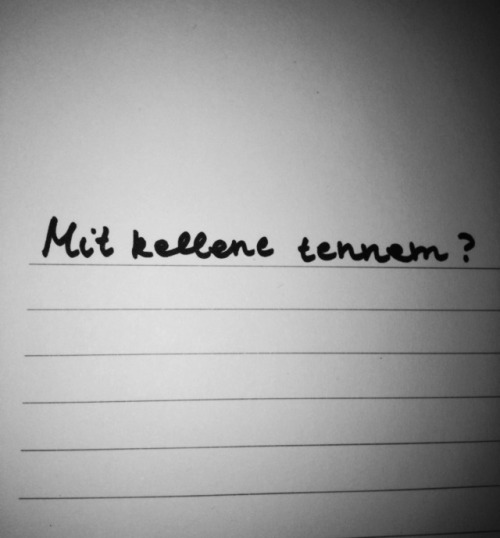 Mit kellene tennem?